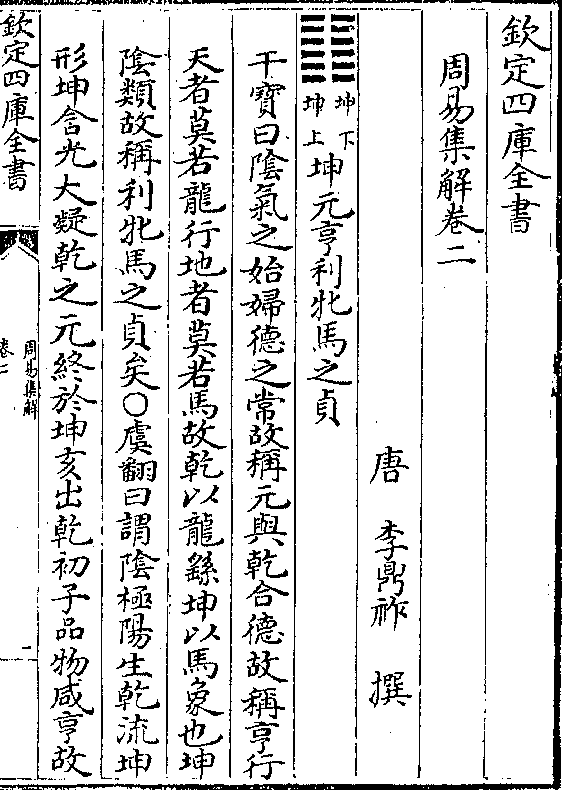 欽定四庫全書
周易集解卷二
唐 李鼎祚 撰
䷁坤下坤上坤元亨利牝馬之貞
干寶曰陰氣之始婦德之常故稱元與乾合德故稱亨行
天者莫若龍行地者莫若馬故乾以龍繇坤以馬象也坤
陰類故稱利牝馬之貞矣○虞翻曰謂陰極陽生乾流坤
形坤含光大凝乾之元終於坤亥出乾初子品物咸亨故
欽定四庫全書
周易集解
卷二
一